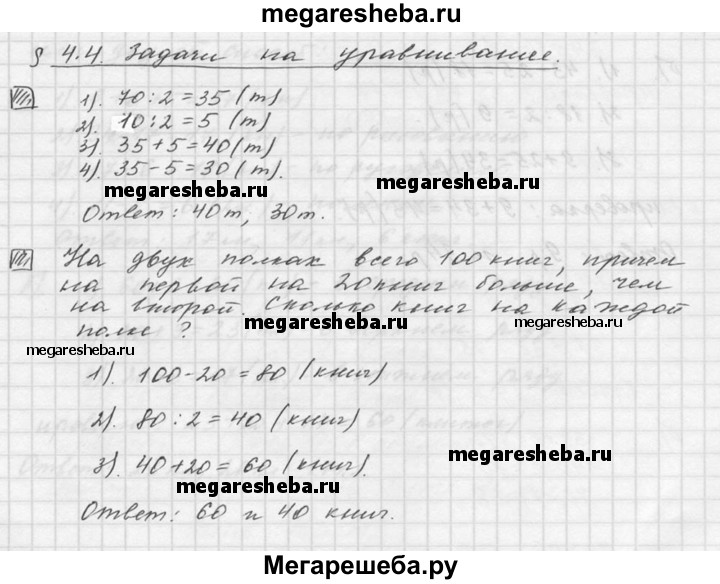 megaresheba.ru
§ 4.4. Задачи на уравнивание.
1). 70 : 2 = 35 (т)
2). 10 : 2 = 5 (т)
3). 35 + 5 = 40 (т)
4). 35 - 5 = 30 (т)
megaresheba.ru
megaresheba.ru
Ответ: 40т, 30т.
На двух полках всего 100 книг, причем
на первой на 20 книг больше, чем
на второй. Сколько книг на каждой
полке ?
megaresheba.ru
megaresheba.ru
megaresheba.ru
1). 100 - 20 = 80 (книг)
2). 80 : 2 = 40 (книг)
3). 40 + 20 = 60 (книг).
megaresheba.ru
megaresheba.ru
Ответ: 60 и 40 книг.
Мегарешеба.ру